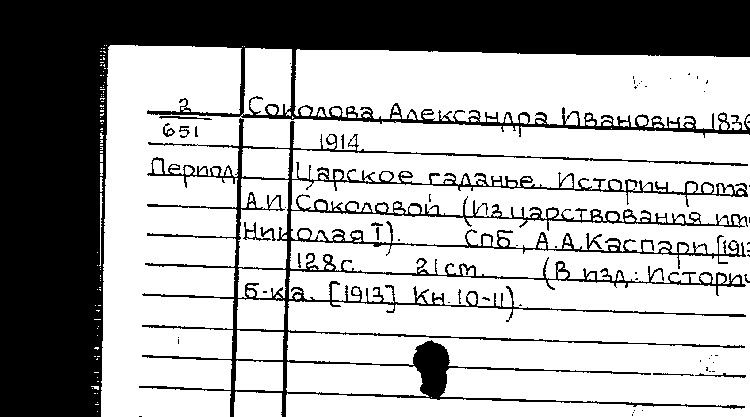 2 Соколова, Александра Ивановна, 1836
651
1914.
Период. Царское гаданье. Историч. рома
А.И. Соколовой (Из царствования имп
Николая I). СПб., А.А. Каспари, [1913
128 с. 21 см. (В изд.: Историч
б-ка. [1913] Кн. 10-11).